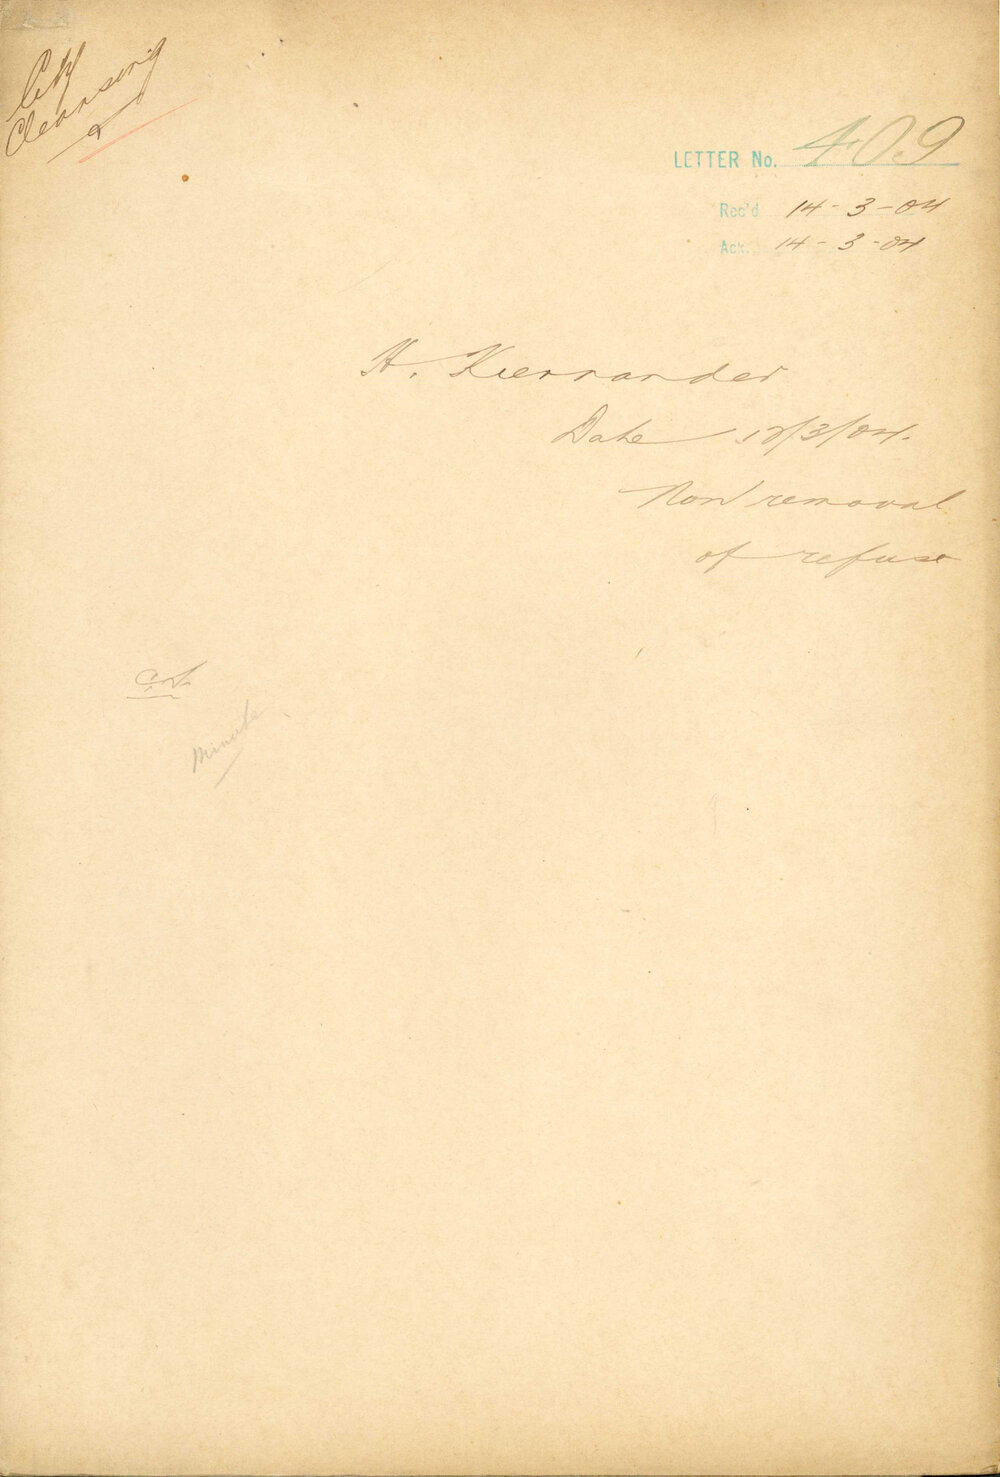 City
Cleansing
LETTER No. 409
Rec'd 14-3-04
Ack. 14-3-04
H. Kiernander
Date 12/3/04.
Non removal
of refuse
Minute